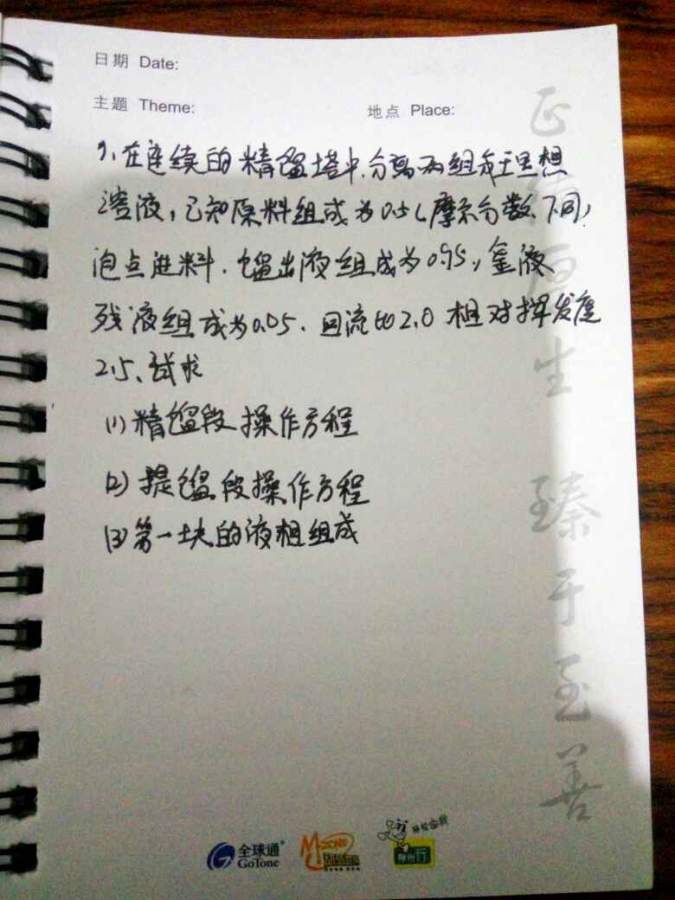 日期 Date:
主题 Theme: 地点 Place:
1、在连续的精馏塔中,分离两组分理想
溶液,已知原料组成为0.5(摩尔分数、下同)
泡点进料、馏出液组成为0.95,釜液
残液组成为0.05、回流比2.0 相对挥发度
2.5、试求
(1)精馏段操作方程
(2)提馏段操作方程
(3)第一块的液相组成
正德厚生 臻于至善
全球通
GoTone
M-ZONE
神州行